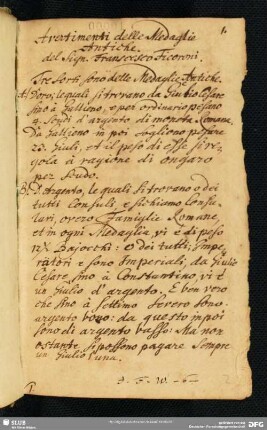 1.
Avertimenti delle Medaglie
Antiche.
del Sign. Francesco Ficoroni.
Tre Sorti sono delle Medaglie Antiche.
A. D'oro; le quali si trovano da Giulio Cesare
sino à Gallieno, e per ordinario pesano
4. Scudi d'argento di moneta Romana.
Da Gallieno in poi sogliono pesare
23. Giuli, et il peso di esse si re-
gola à ragione di ongaro
per Scudo.
B. D'Argento, le quali si trovano ò dei
tutti Consuli, e si chiamo Consu-
lari, overo Famiglie Romane,
et in ogni Medaglia vi è di peso
Bajocchi: O dei tutti Impe-
ratori e sono Imperiali, da Giulio
Cesare sino à Constantino, vi è
un Giulio d'argento. E ben vero
che sino à Settimo Severo sono
argento buono: da questo in poi
sono di argento basso: Ma non
ostante si possono pagare Sempre
un Giulio l'una.
SLUB
DFG